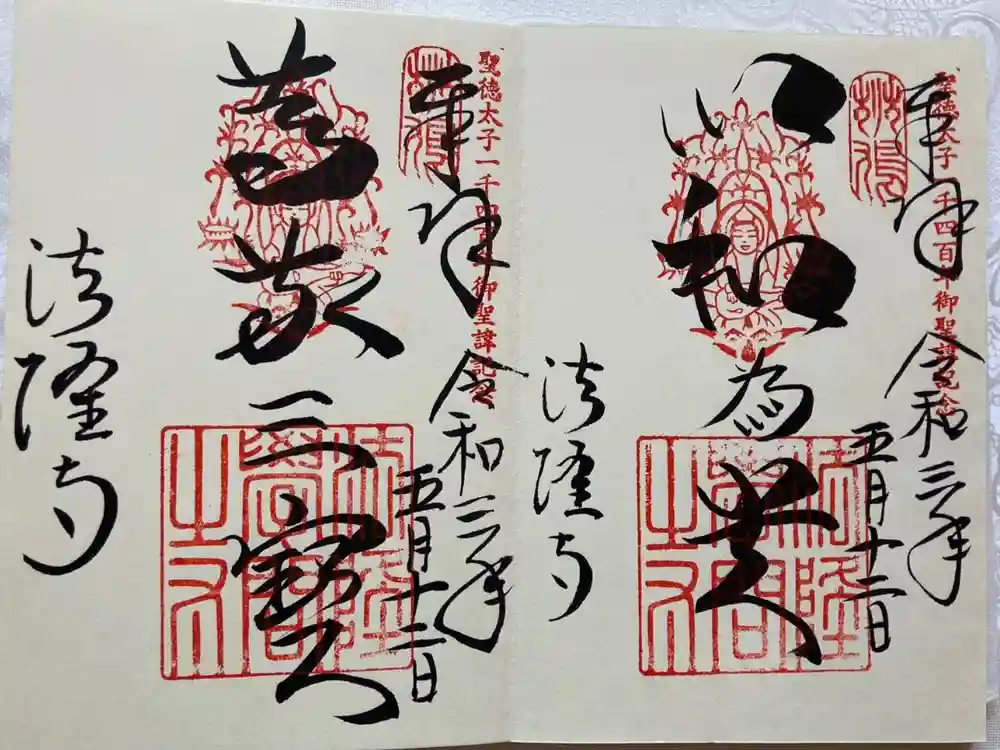 聖徳太子一千四百年御聖諱記念
奉拝
令和三年
五月十二日
以和為貴
法隆寺
聖徳太子一千四百年御聖諱記念
奉拝
令和三年
五月十二日
篤敬三寶
法隆寺